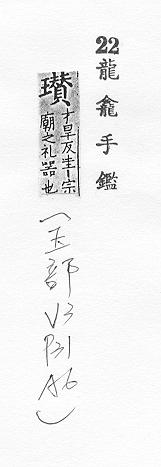 22 龍龕手鑑
瓉
才旱反圭丨宗
廟之礼器也
(玉部 V3 P31 A6)